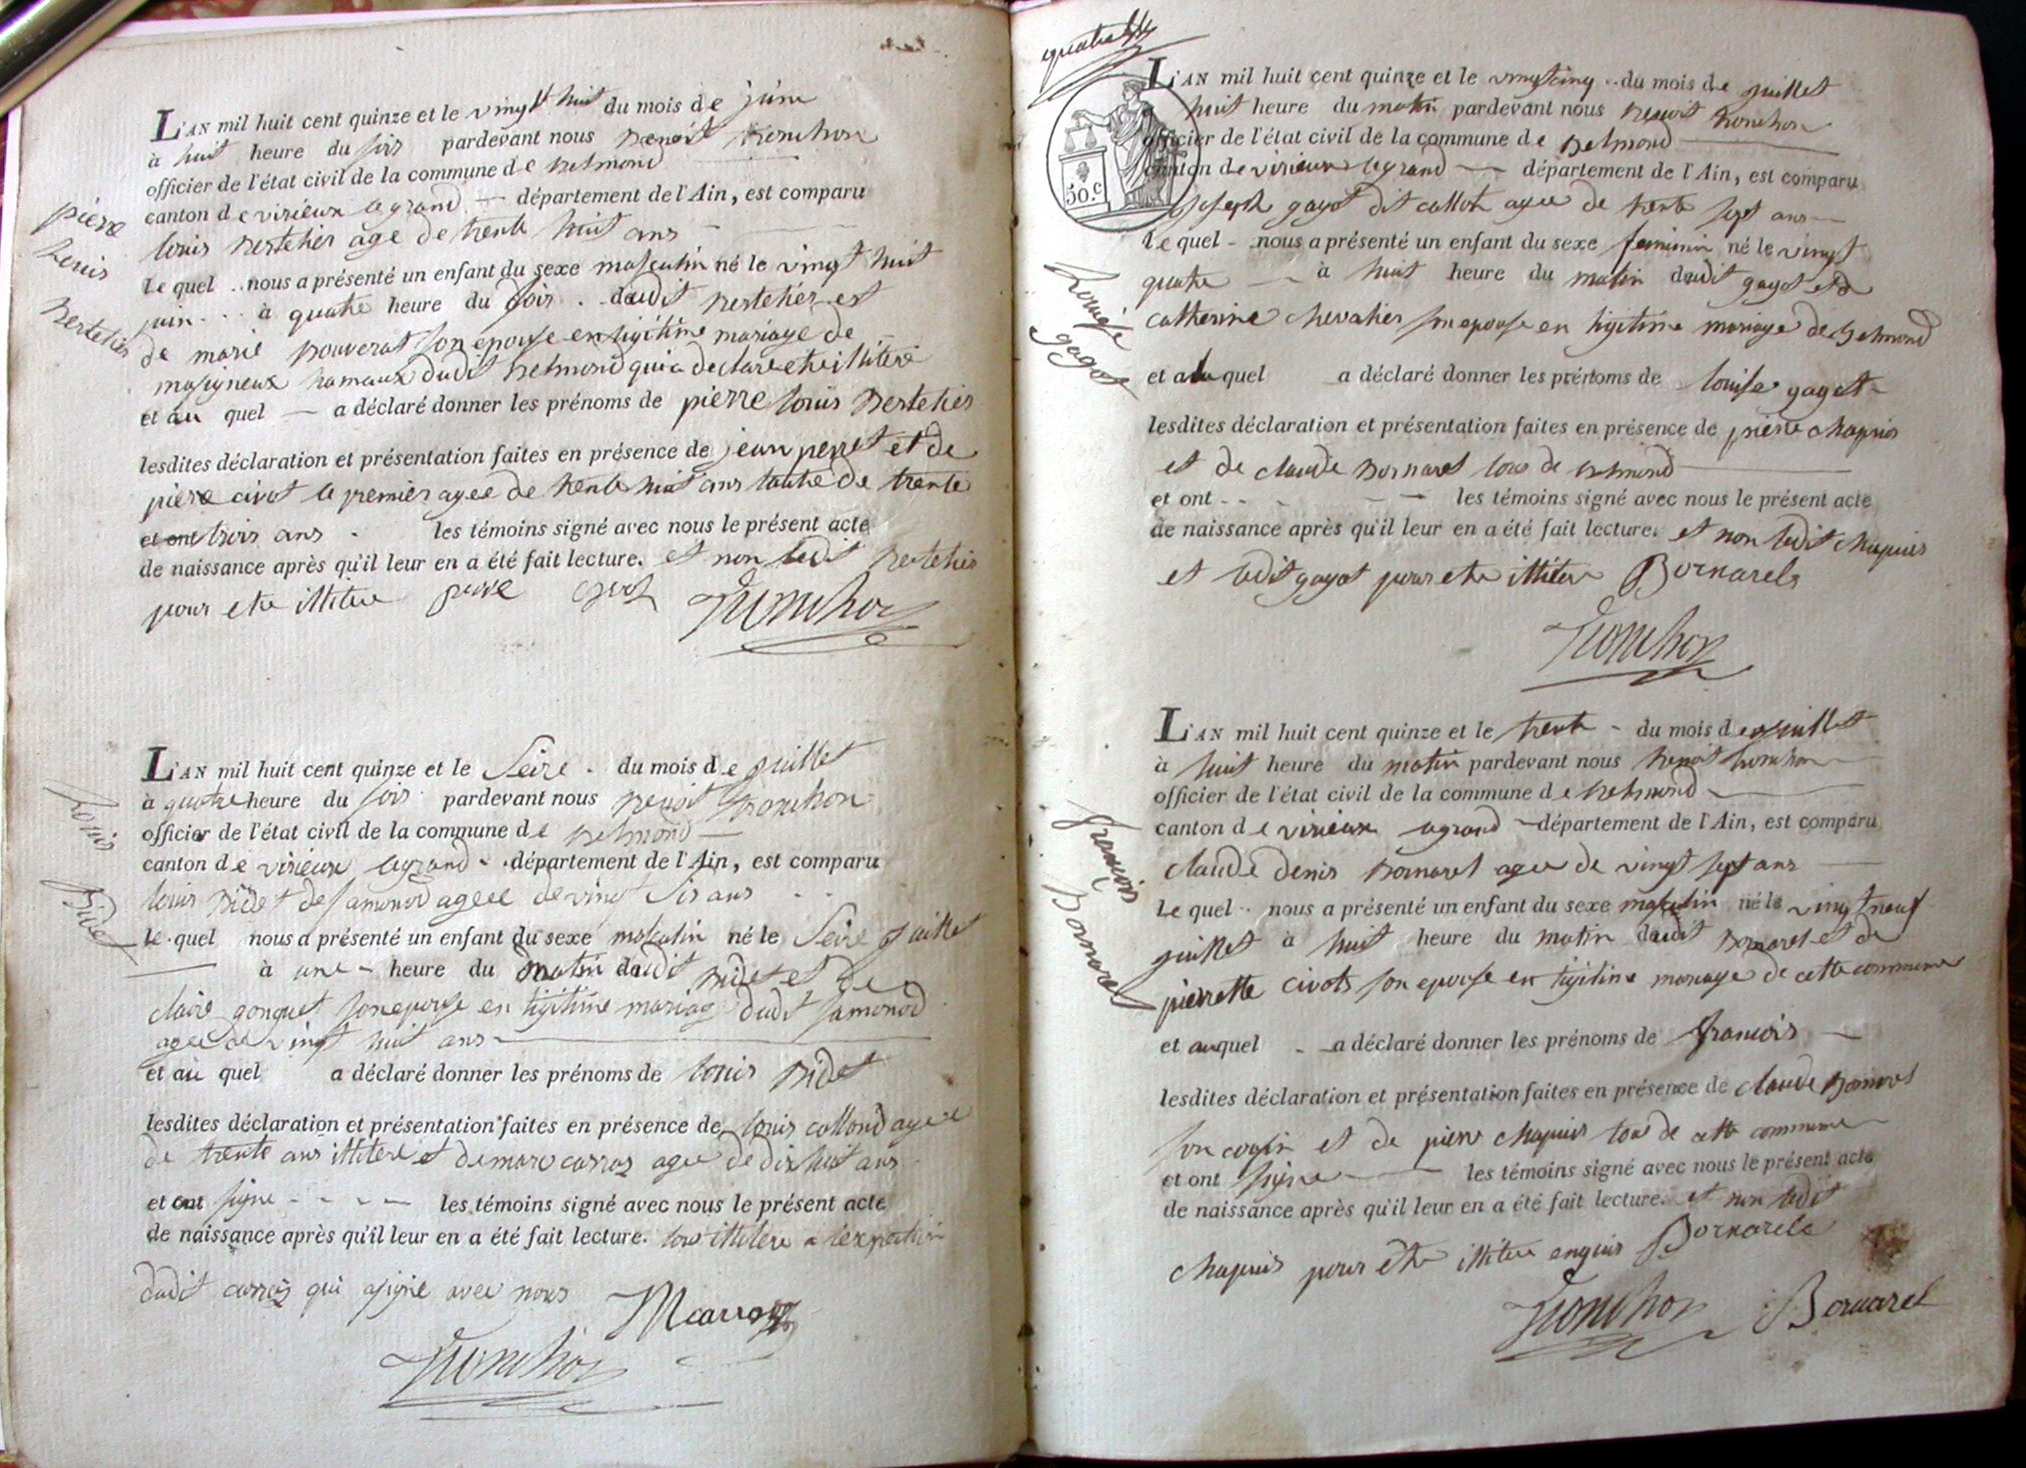 L'AN mil huit cent quinze et le vingt huit du mois de juin
à huit heure du soir pardevant nous Benoit tronchon
officier de l'état civil de la commune de Belmond
canton de virieux legrand département de l'Ain, est comparu
louis Berthetier age de trente huit ans
Le quel nous a présenté un enfant du sexe masculin né le vingt huit
juin à quatre heure du soir dudit est
de marie son epouse en ligitime mariage de
hamaux dudit Belmond qui a declare etre illitere
et au quel a déclaré donner les prénoms de pierre louis
lesdites déclaration et présentation faites en présence de jean perret et de
piere civot le premier agee de trente huit ans lautre de trente
et ont trois ans les témoins signé avec nous le présent acte
de naissance après qu'il leur en a été fait lecture. et non ledit
pour etre illitere Tronchon
pierre
louis
L'AN mil huit cent quinze et le Seize du mois de juillet
à quatre heure du soir pardevant nous Benoit tronchon
officier de l'état civil de la commune de Belmond
canton de virieux legrand département de l'Ain, est comparu
louis Bidet de samonod agee de vingt Sis ans
Le quel nous a présenté un enfant du sexe masculin né le Seize juillet
à une heure du matin dudit Bidet et de
claire gonguet son epouse en ligitime mariag dudit samonod
agee de vingt huit ans
et au quel a déclaré donner les prénoms de louis Bidet
lesdites déclaration et présentation faites en présence de louis collond agee
de trente ans illitere et de marc carraz agee de dix huit ans
et ont signe les témoins signé avec nous le présent acte
de naissance après qu'il leur en a été fait lecture. tous illitere a lexception
dudit carraz qui a signe avec nous Mcarraz
Tronchon
Louis Bidet
quatre
50.c
L'AN mil huit cent quinze et le vingt cinq du mois de juillet
à huit heure du matin pardevant nous Benoit tronchon
officier de l'état civil de la commune de Belmond
canton de virieux legrand département de l'Ain, est comparu
joseph gayot dit collon agee de trente sept ans
Le quel nous a présenté un enfant du sexe feminin né le vingt
quatre à huit heure du matin dudit gagot et de
catherine chevalier son epouse en ligitime mariage de Belmond
et a la quel a déclaré donner les prénoms de louise gagot
lesdites déclaration et présentation faites en présence de pierre chapuis
et de claude Bornarel tous de belmond
et ont les témoins signé avec nous le présent acte
de naissance après qu'il leur en a été fait lecture. et non ledit chapuis
et ledit gagot pour etre illitere Bornarel
Tronchon
gagot
L'AN mil huit cent quinze et le trente du mois de juillet
à huit heure du matin pardevant nous Benoit tronchon
officier de l'état civil de la commune de belmond
canton de virieux legrand département de l'Ain, est comparu
claude denis Bornarel agee de vingt sept ans
Le quel nous a présenté un enfant du sexe masculin né le vingt neuf
juillet à huit heure du matin dudit Bornarel et de
pierrette civots son epouse en ligitime mariage de cette commune
et au quel a déclaré donner les prénoms de francois
lesdites déclaration et présentation faites en présence de claude Bornarel
son cousin et de pierre chapuis tous de cette commune
et ont signe les témoins signé avec nous le présent acte
de naissance après qu'il leur en a été fait lecture. et non ledit
chapuis pour etre illitere Bornarel
Tronchon Bornarel
francois Bornarel